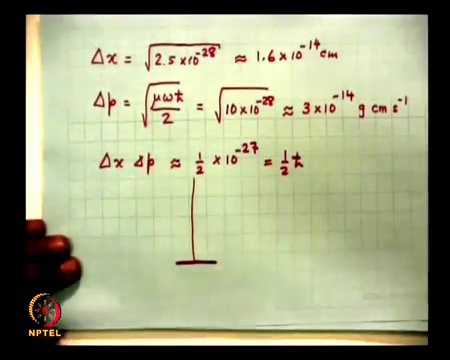 Δx = √2.5×10⁻²⁸ ≈ 1.6×10⁻¹⁴ cm
Δp = √(μωħ/2) = √10×10⁻²⁸ ≈ 3×10⁻¹⁴ g cm s⁻¹
Δx Δp ≈ 1/2 ×10⁻²⁷ = 1/2 ħ
NPTEL